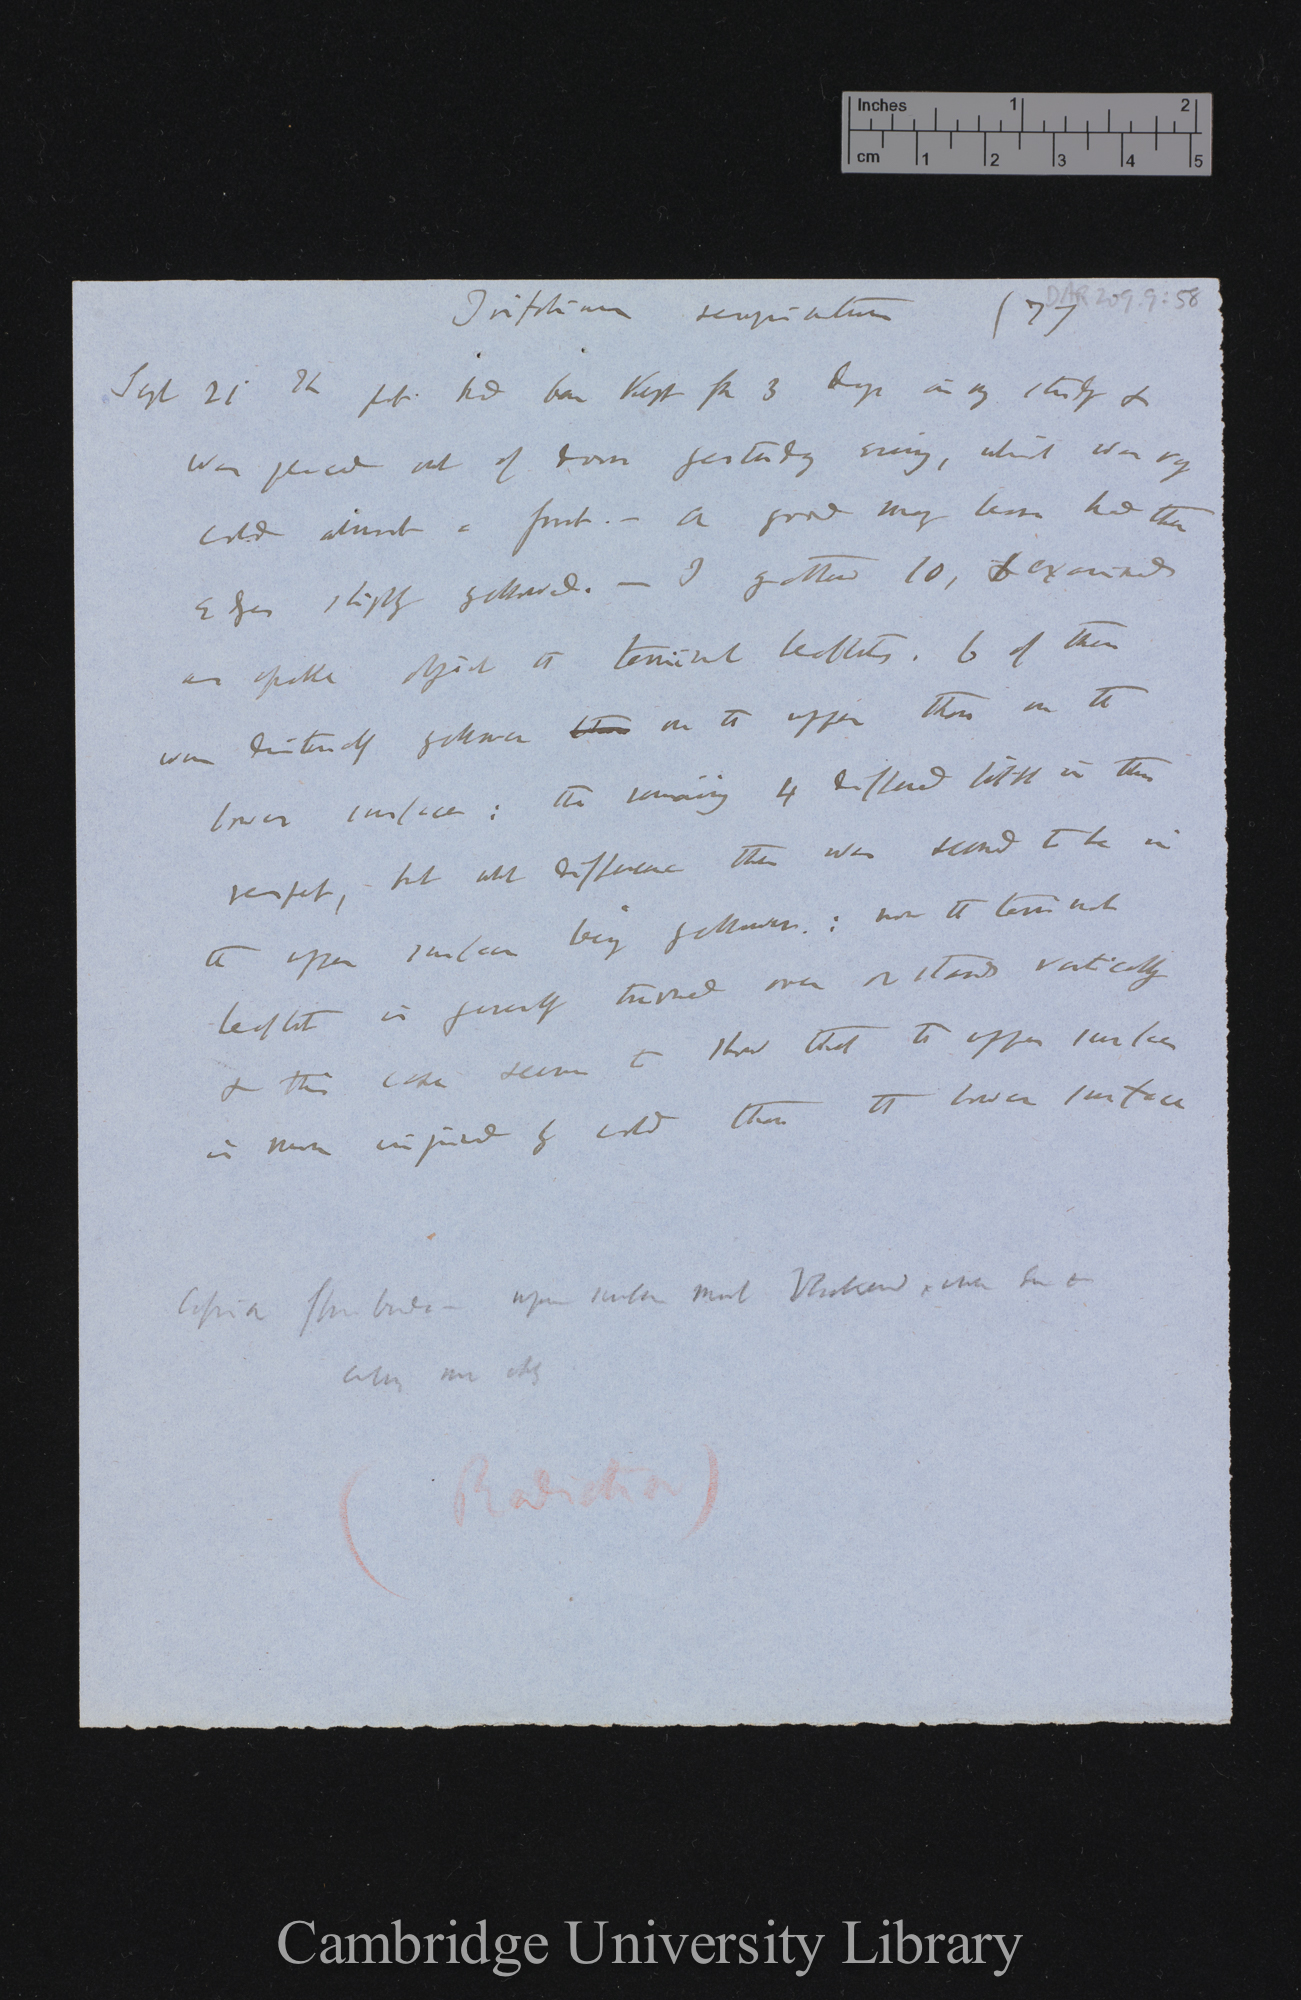 Inches 1 2
cm 1 2 3 4 5
DAR 209.9:58
Trifolium resupinatum (7)
Sept 21 The pot had been kept for 3 days in my study &
was placed out of doors yesterday evening, which was very
cold almost a frost. — A good many leaves had their
edges slightly yellowed. — I gathered 10, & examined
on opaque object the terminal leaflets. 6 of them
were distinctly yellower on the upper than on the
lower surface; the remaining 4 differed little in this
respect, but what difference there was seemed to be in
the upper surface being yellower.: now the terminal
leaflet is generally turned over or stands vertically
& this case seems to show that the upper surface
is more injured by cold than the lower surface
Cassia floribunda — upper surface most blackened
(Radiation)
Cambridge University Library